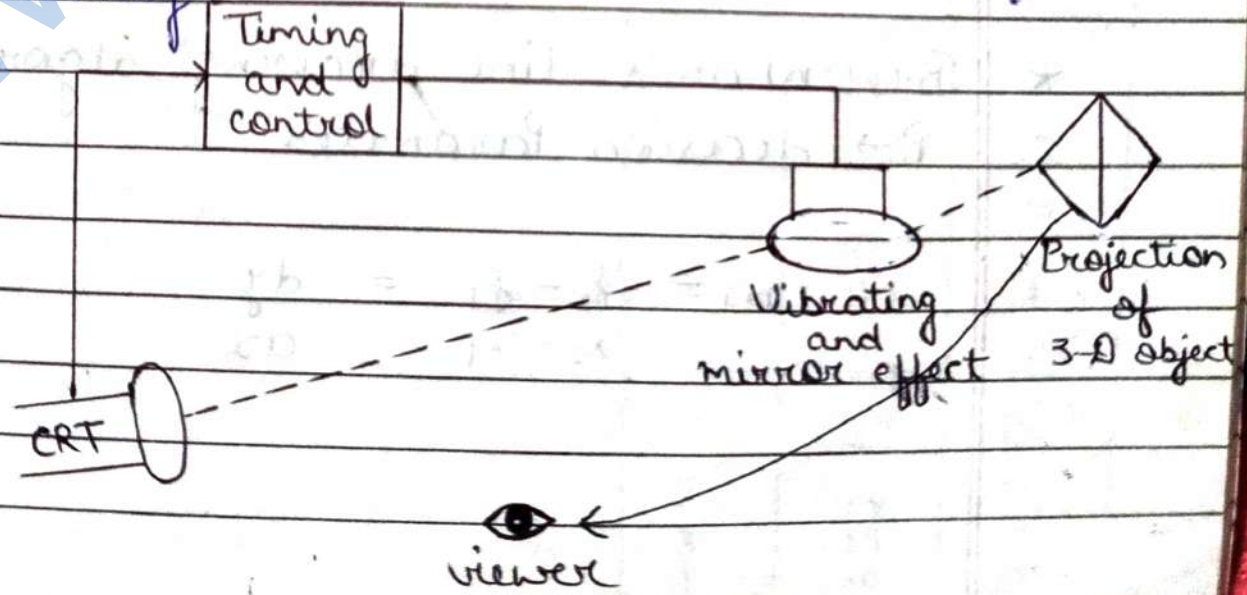 Timing
and
control
CRT
Vibrating
and
mirror effect
Projection
of
3-D object
viewer